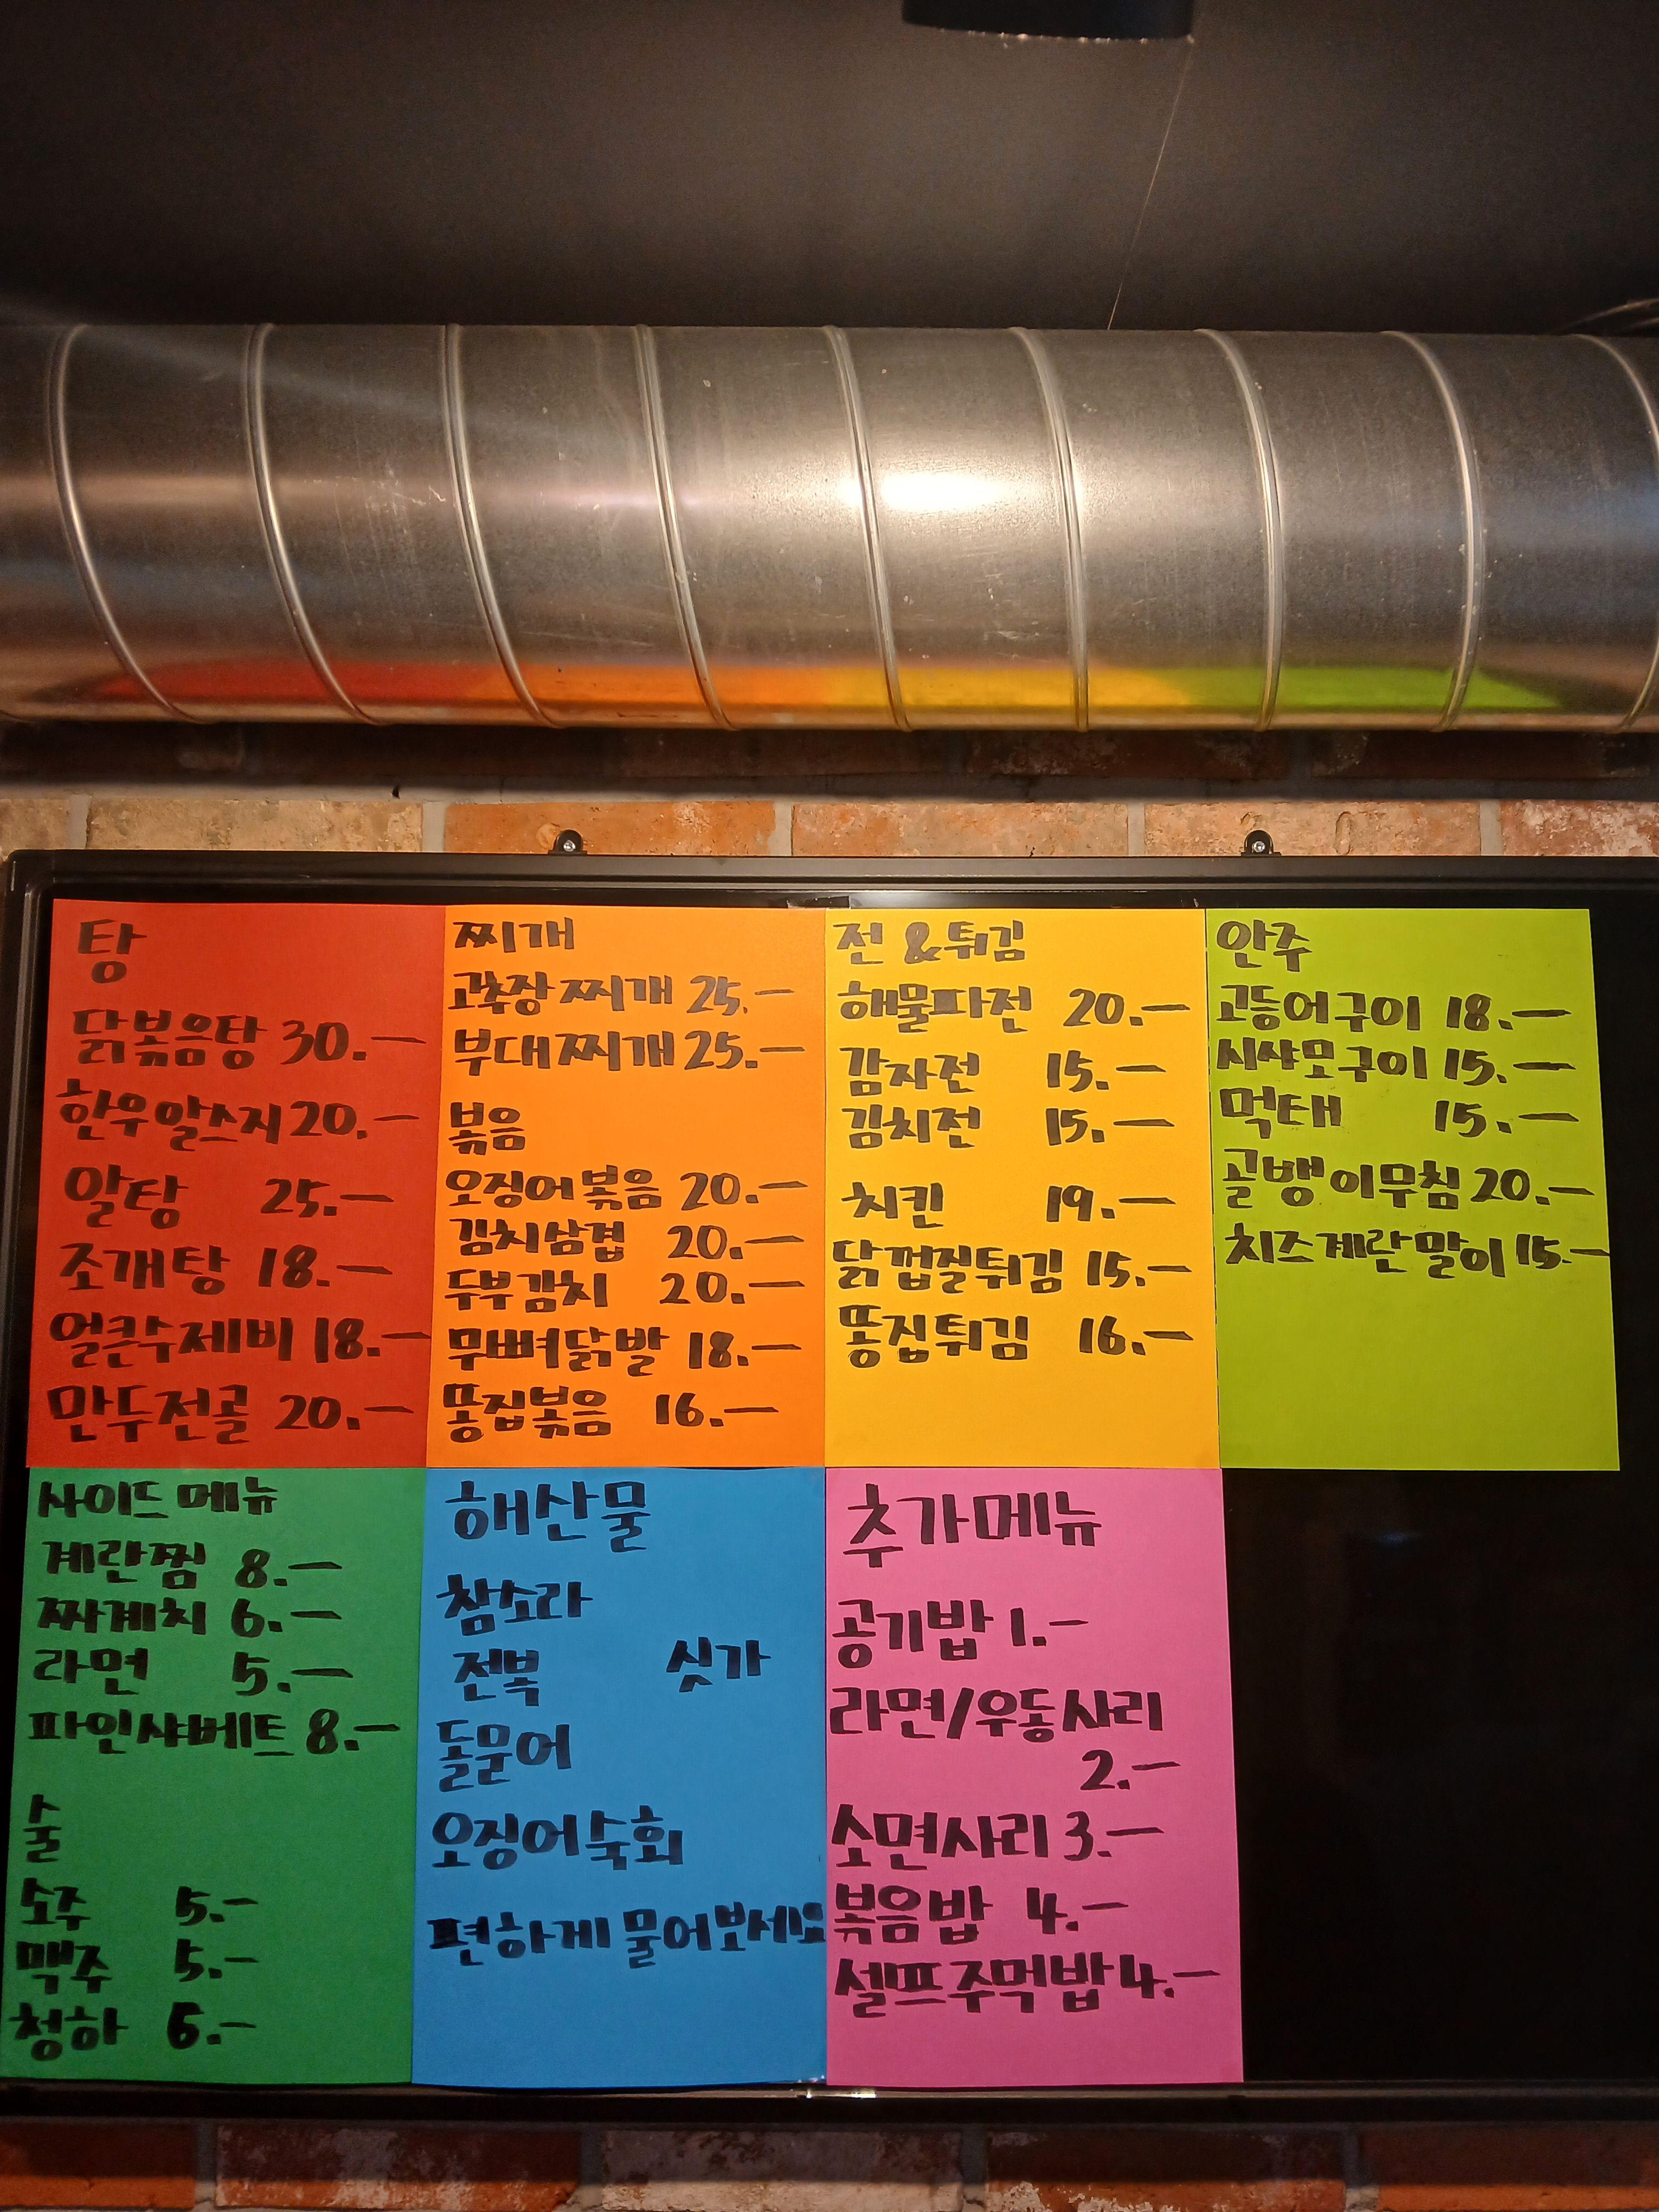 탕
닭볶음탕 30.—
한우알스지 20.—
알탕 25.—
조개탕 18.—
얼큰수제비 18.—
만두전골 20.—
찌개
고추장찌개 25.—
부대찌개 25.—
볶음
오징어볶음 20.—
김치삼겹 20.—
두부김치 20.—
무뼈닭발 18.—
똥집볶음 16.—
전 & 튀김
해물파전 20.—
감자전 15.—
김치전 15.—
치킨 19.—
닭껍질튀김 15.—
똥집튀김 16.—
안주
고등어구이 18.—
시샤모구이 15.—
먹태 15.—
골뱅이무침 20.—
치즈계란말이 15.—
사이드 메뉴
계란찜 8.—
짜계치 6.—
라면 5.—
파인샤베트 8.—
술
소주 5.—
맥주 5.—
청하 6.—
해산물
참소라
전복 싯가
돌문어
오징어숙회
편하게 물어보세요
추가메뉴
공기밥 1.—
라면/우동사리
2.—
소면사리 3.—
볶음밥 4.—
셀프주먹밥 4.—